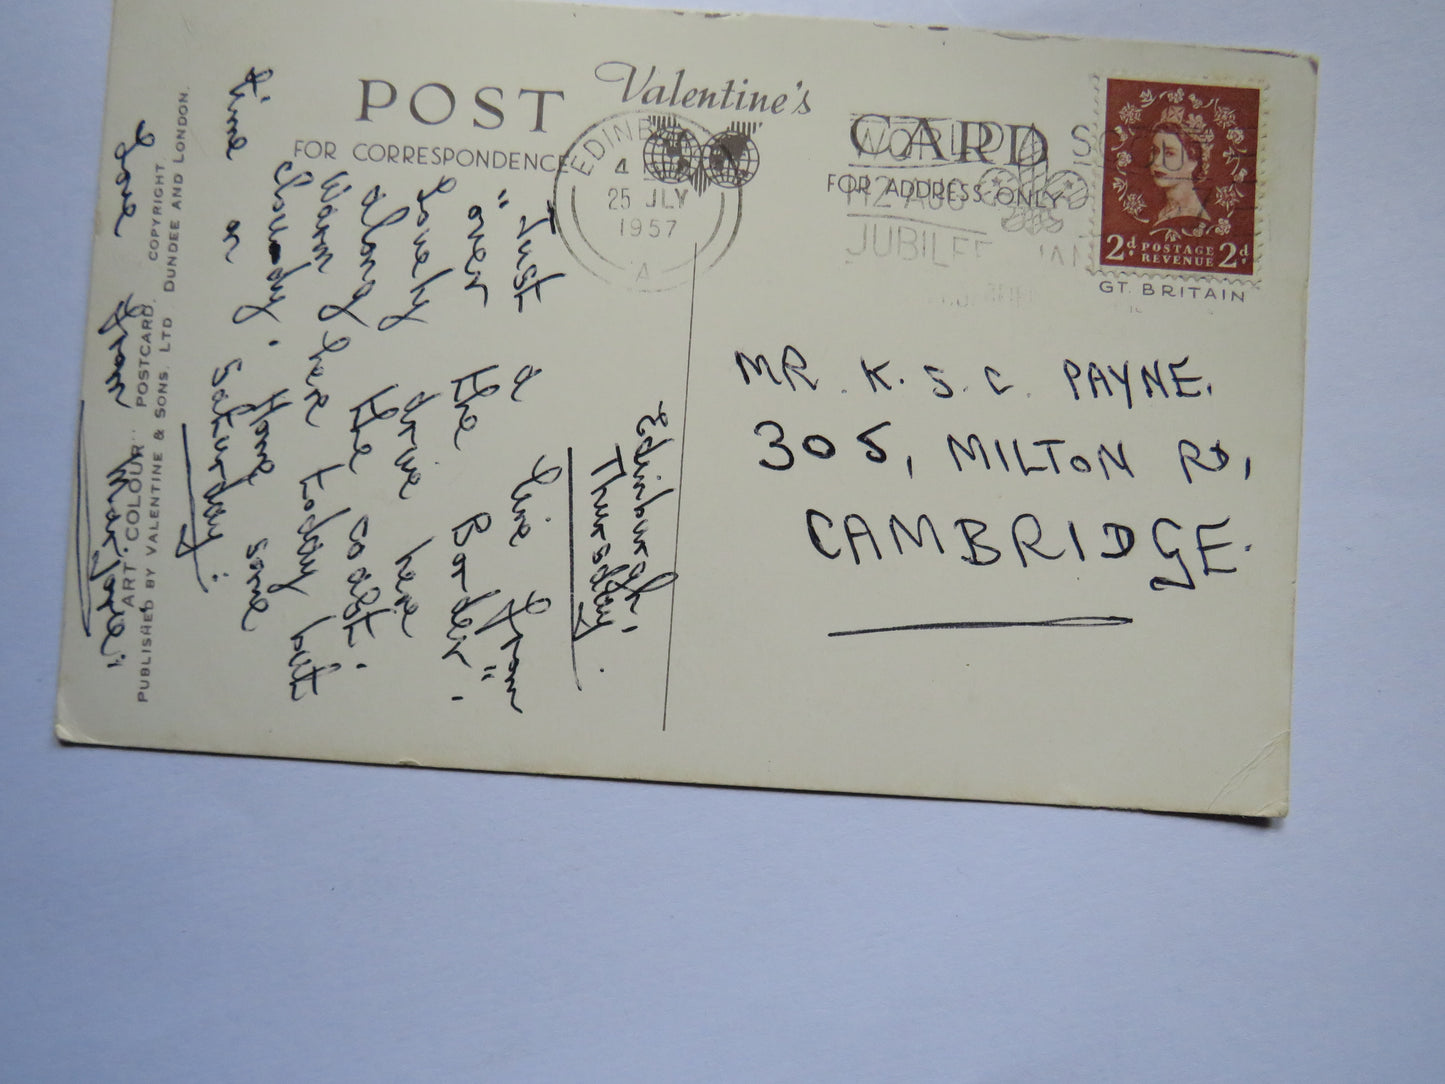 POST Valentine's CARD
FOR CORRESPONDENCE
FOR ADDRESS ONLY
EDINB
4
25 JLY
1957
A
WORLD SC
1-12 AUG
JUBILEE JAM
2d POSTAGE REVENUE 2d
GT. BRITAIN
MR. K. S. C. PAYNE.
305, MILTON RD,
CAMBRIDGE.
Edinburgh,
Thursday.
Just a line from
"over the Border".
Lovely drive here
along the coast.
Warm here today but
cloudy. Home some
time on Saturday.
Love from Marjorie"
"ART COLOUR" POSTCARD. COPYRIGHT.
PUBLISHED BY VALENTINE & SONS. LTD DUNDEE AND LONDON.